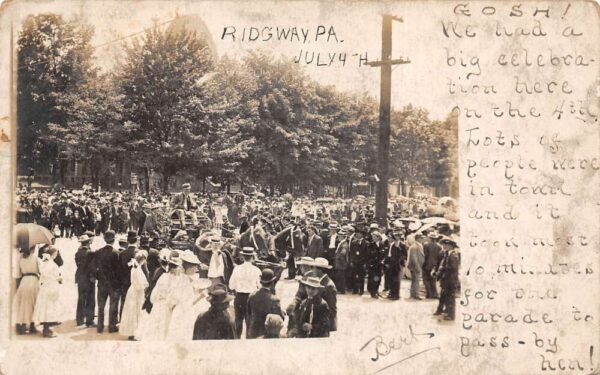 RIDGWAY, PA.
JULY 4TH
GOSH!
We had a
big celebra-
tion here
on the 4th,
Lots of
people were
in town
and it
took most
10 minutes
for the
parade to
pass-by
hen!
Bert